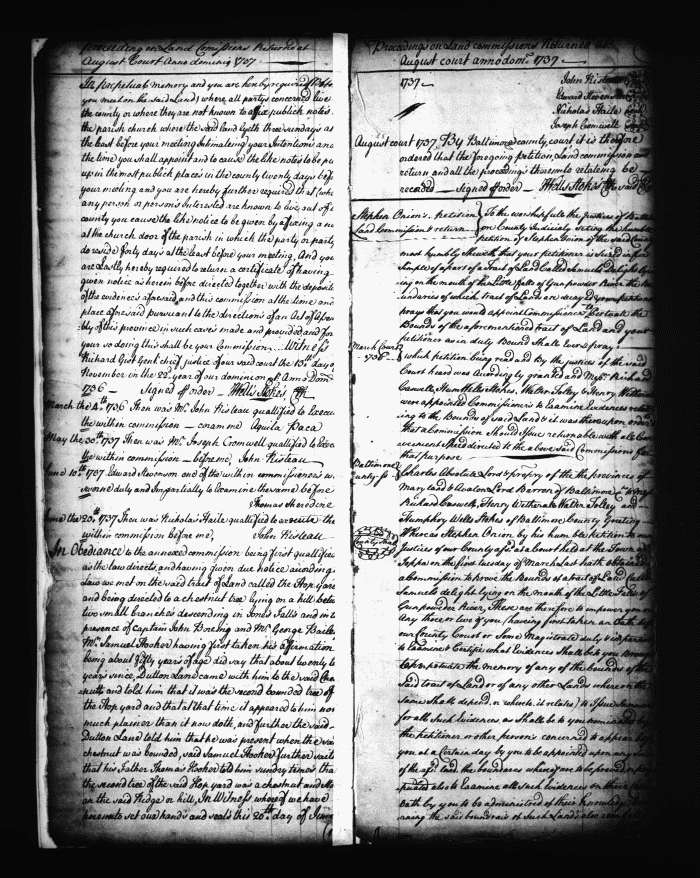 Proceeding on Land Comissions Returned at
August Court Anno domini 1737
In perpetual memory and you are hereby required
you meet on the said Land) where all partys concerned live
the county or where they are not known to affix publick notes
the parish church where the said land lyeth three sundays at
the least before your meeting Intimateing your Intentions and
the time you shall appoint and to cause the like notes to be pu
up in the most publick places in the county twenty days bef
your meeting and you are hereby further required that
any person or persons Interested are known to live out of
county you cause the like notice to be given by affixing a
at the church door of the parish in which the party or party
do reside forty days at the least before your meeting, And you
are lastly hereby required to return a certificate of having
given notice as herein before directed together with the deposit
of the evidences aforesaid, and this commission at the time and
place aforesaid pursuant to the directions of an Act of
bly of this province in such case is made and provided and for
your so doing this shall be your Commission. Witness
Richard Gist Gent chief justice of our said court the 15th day o
November in the 22d year of our dominion & Anno Dom
1736 Signed & order Wells Stokes
March the 4th 1736 Then was Mr John Risteau quallified to Execu
the within commission Aquila Paca
May the 30th 1737 Then was Mr Joseph Cromwell quallified to
the within commission before me, John Risteau
June 10th 1737 Edward Stevenson one of the within commissioners
duty and Impartially to Examine the same before
Thomas Sheredine
June the 20th 1737 Then was Nicholas Haile quallified to execute the
within commission before me, John Risteau
In Obediance to the annexed commission being first quallified
as the law directs, and having given due notice according
Law we met on the said tract of Land called the Hop yard
and being directed to a chestnut tree lying on a hill betw
two small branches descending in Jones Falls and in t
presence of Captain John Boering and Mr George Baile
Mr Samuel Hooker having first taken his affirmation
being about fifty years of age did say that about twenty
years since, Dutton Land came with him to the said Che
nutt and told him that it was the second bounded tree of
the Hop yard and that at that time it appeared to him
much plainer than it now doth, and further the said
Dutton Lane told him that he was present when the sa
chestnut was bounded, said Samuel Hooker further saith
that his Father Thomas Hooker told him sundry times tha
the second tree of the said Hop yard was a chestnut and
on the said Ridge or hill, In Witness whereof we have
hereunto set our hands and seals this 20th day of June
Proceedings on Land commissions Returned at
August court anno dom: 1737
1737
John Risteau
Edward Stevenson
Nicholas Haile
Joseph Cromwell
August court 1737 By Baltimore county court it is therefore
ordered that the foregoing petition, Land commission and
return and all the proceedings thereto relateing be
recorded signed & order Wells Stokes
Stephen Onion's petition
Land Commission & return
To the worshipfull the Justices of
County Judicialy seting the humble
petition of Stephen Onion of the said County
most humbly Sheweth that your petitioner is seized in fee
Simple of a part of a Tract of Land Called Samuels delight ly
ing on the mouth of the Little falls of Gun powder River the Bo
undaries of which tract of Land are decayed your petitioner
prays that you would appoint Commissioners to
Bounds of the aforementioned tract of Land and your
petitioner as in duty Bound Shall Ever pray
March Court
1736
which petition being read and by the justices of the said
Court heard was According by granted and Messrs Richard
Caswell, Hum Wells Stokes, Walter Tolley & Henry Wetherall
were appointed Commissioners to Examine Evidences relat
ing to the Bounds of said Land & it was thereupon ordered
that a Commission Should Issue returnable with all
directed to the above said Commissioners for
that purpose
Baltimore
County Ss
Charles Absolute Lord & propry of the provinces of
Maryland & Avalon Lord Barron of Baltimore
Richard Caswell, Henry Wetherall Walter Tolley and
Humphry Wells Stokes of Baltimore County Greeting
Whereas Stephen Onion by his humble petition to our
Justices of our County afd at a Court held at the Town of
Joppa on the first tuesday of March last hath obtained
a commission to prove the Bounds of a tract of Land Called
Samuels delight lying on the mouth of the Little Falls of
Gunpowder River, These are therefore to impower you or
Any three or two of you (having first taken an Oath before
our County Court or Some Magistrate duly & impartial
to Examine & Certifie what Evidences Shall be by you
to perpetuate the memory of any of the bounds of the
said tract of Land or of any other Lands whereon the
same Shall depend, or whereto, it relates) to Issue
for all such Evidences, as Shall be to you nominated by
the petitioner or other persons concerned to appear before
you at a Certain day by you to be appointed upon any
of the afd land the boundaries whereof are to be proved or
petuated also to Examine all such Evidences on their
Oath by you to be administered of their knowledge
ning the said boundaries of Such Lands also